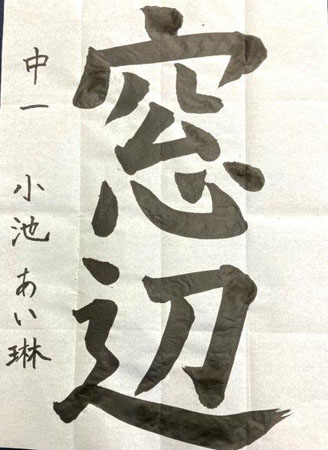 窓辺
中一 小池あい琳